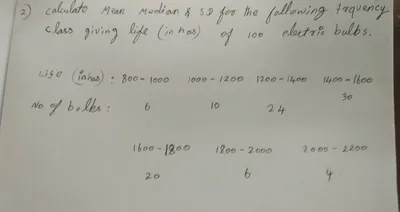 2) calculate Mean Median & SD for the following frquency
class giving life (in hos) of 100 electric bulbs.
Life (in hos) : 800-1000 1000-1200 1200-1400 1400-1600
No of bulbs : 6 10 24 30
1600-1800 1800-2000 2000-2200
20 6 4